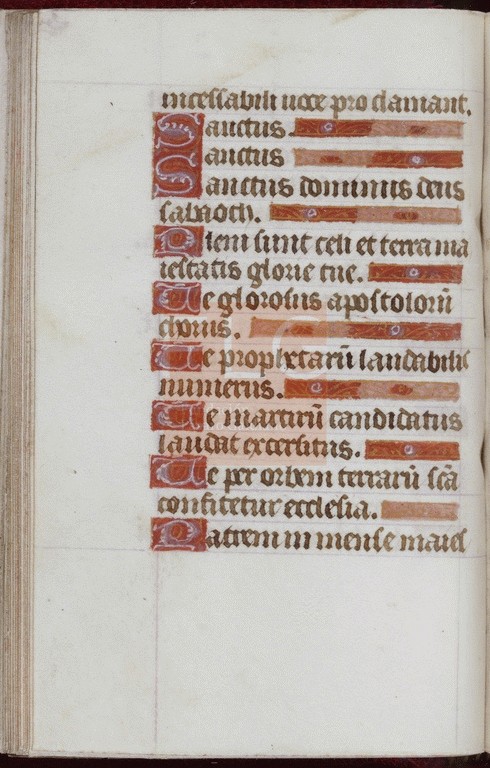 incessabili uoce proclamant.
Sanctus.
Sanctus
Sanctus dominus deus
sabaoth.
Pleni sunt celi et terra ma
iestatis glorie tue.
Te gloroſus apostolorū
chorus.
Te prophetarū laudabilis
numerus.
Te martirū candidatus
laudat excersitus.
Te per orbem terrarū scā
confitetur ecclesia.
Patrem in mense maies